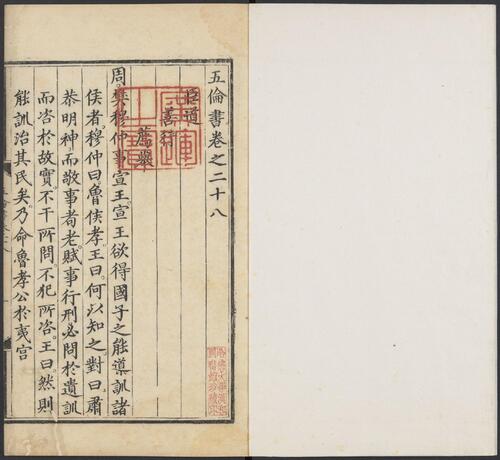 五倫書卷之二十八
臣道
善行
薦舉
周樊穆仲事宣王宣王欲得國子之能導訓諸
侯者穆仲曰魯侯孝王曰何以知之對曰肅
恭明神而敬事耇老賦事行刑必問於遺訓
而咨於故實不干所問不犯所咨王曰然則
能訓治其民矣乃命魯孝公於夷宮